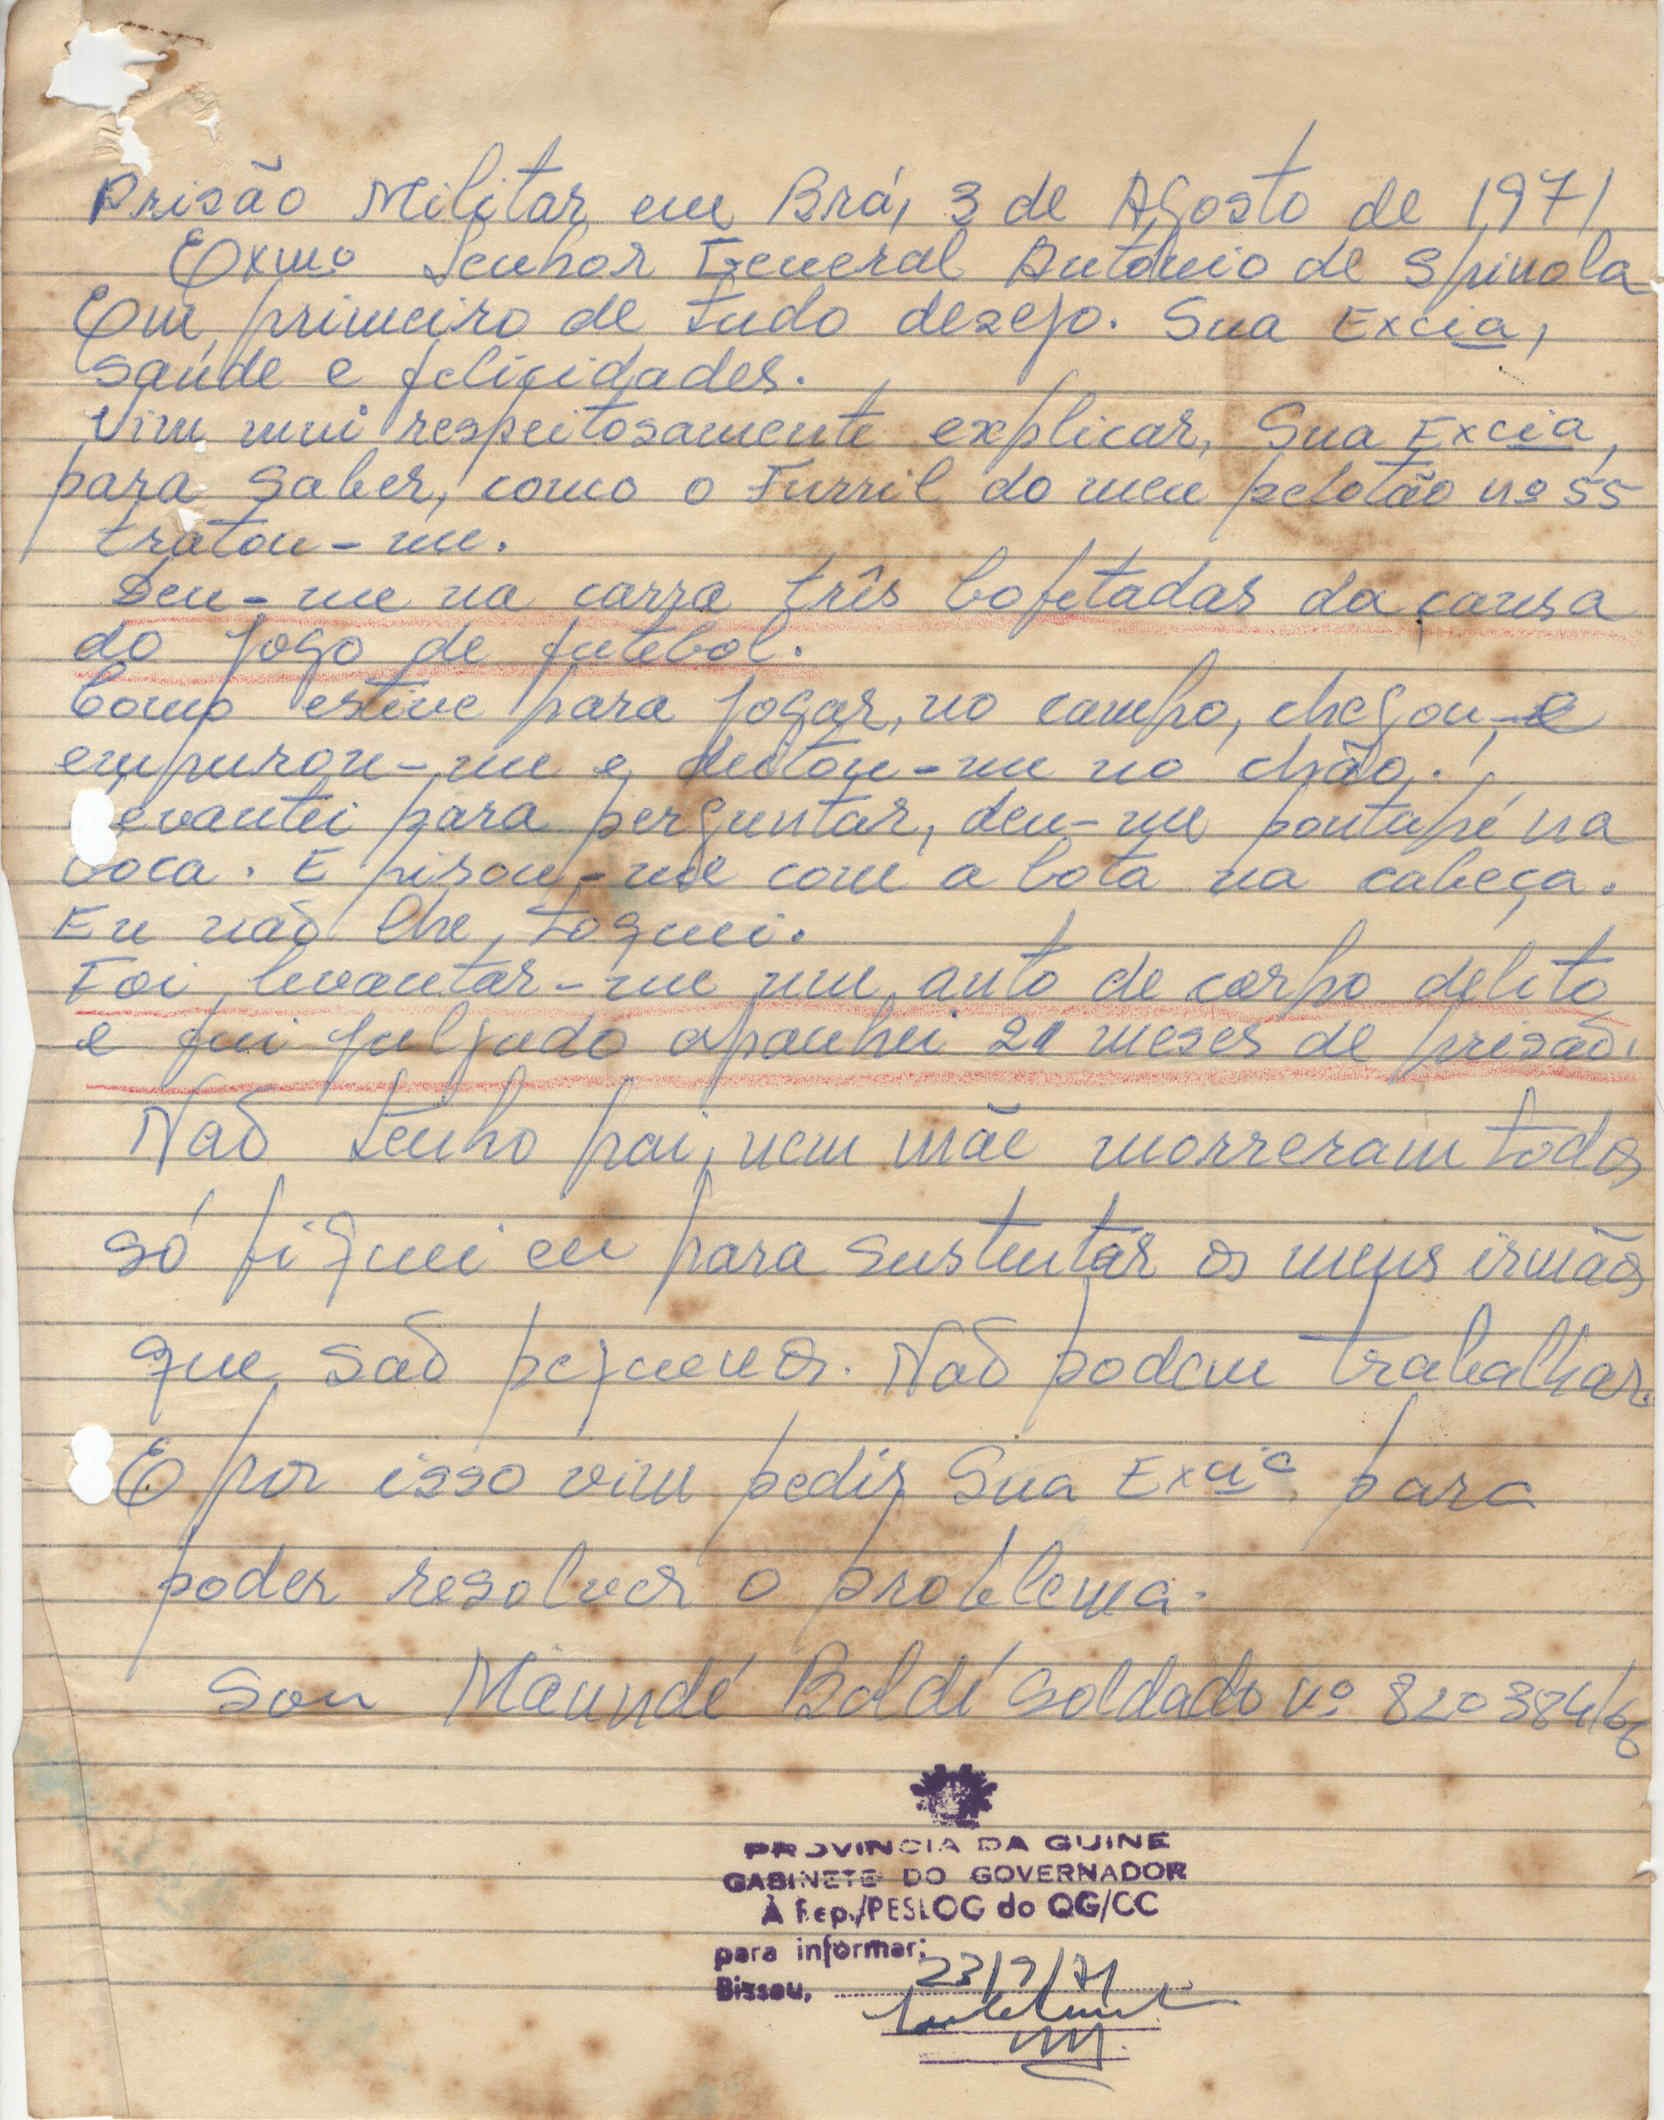 Prisão Militar em Brá, 3 de Agosto de 1971
Exmo Senhor General António de Spinola
Em primeiro de tudo desejo. Sua Excia,
saúde e felicidades.
Vim mui respeitosamente explicar, Sua Excia,
para saber, como o Furril do meu pelotão nº 55
tratou-me.
Deu-me na carra três bofetadas da causa
do jogo de futebol.
Como estive para jogar, no campo, chegou-e
empurou-me e deitou-me no chão.
evantei para perguntar, deu-me pontapé na
boca. E pisou-me com a bota na cabeça.
Eu não lhe toquei.
Foi levantar-me um auto de corpo delito
e fui julgado apanhei 21 meses de prisão.
Não tenho pai, nem mãe morreram todos
só fiquei eu para sustentar os meus irmãos
que são pequenos. Não podem trabalhar.
E por isso vim pedir Sua Excia para
poder resolver o problema.
Sou Maundé Boldé soldado nº 820384/68
PROVINCIA DA GUINE
GABINETE DO GOVERNADOR
À Rep./PESLOG do QG/CC
para informar;
Bissau, 23/9/71